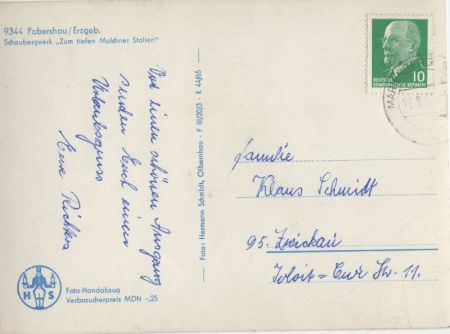 9344 Pobershau/Erzgeb.
Schaubergwerk „Zum tiefen Molchner Stollen"
Von einem schönen Ausgang
senden Euch einen
Urlaubsgruss
Eure Richters
Foto: Hermann Schmidt, Olbernhau · F III/20/3 · K 44/65
H S
Foto-Handabzug
Verbraucherpreis MDN -,25
DEUTSCHE
DEMOKRATISCHE REPUBLIK
10
Familie
Klaus Schmidt
95 Zwickau
Str. 11.